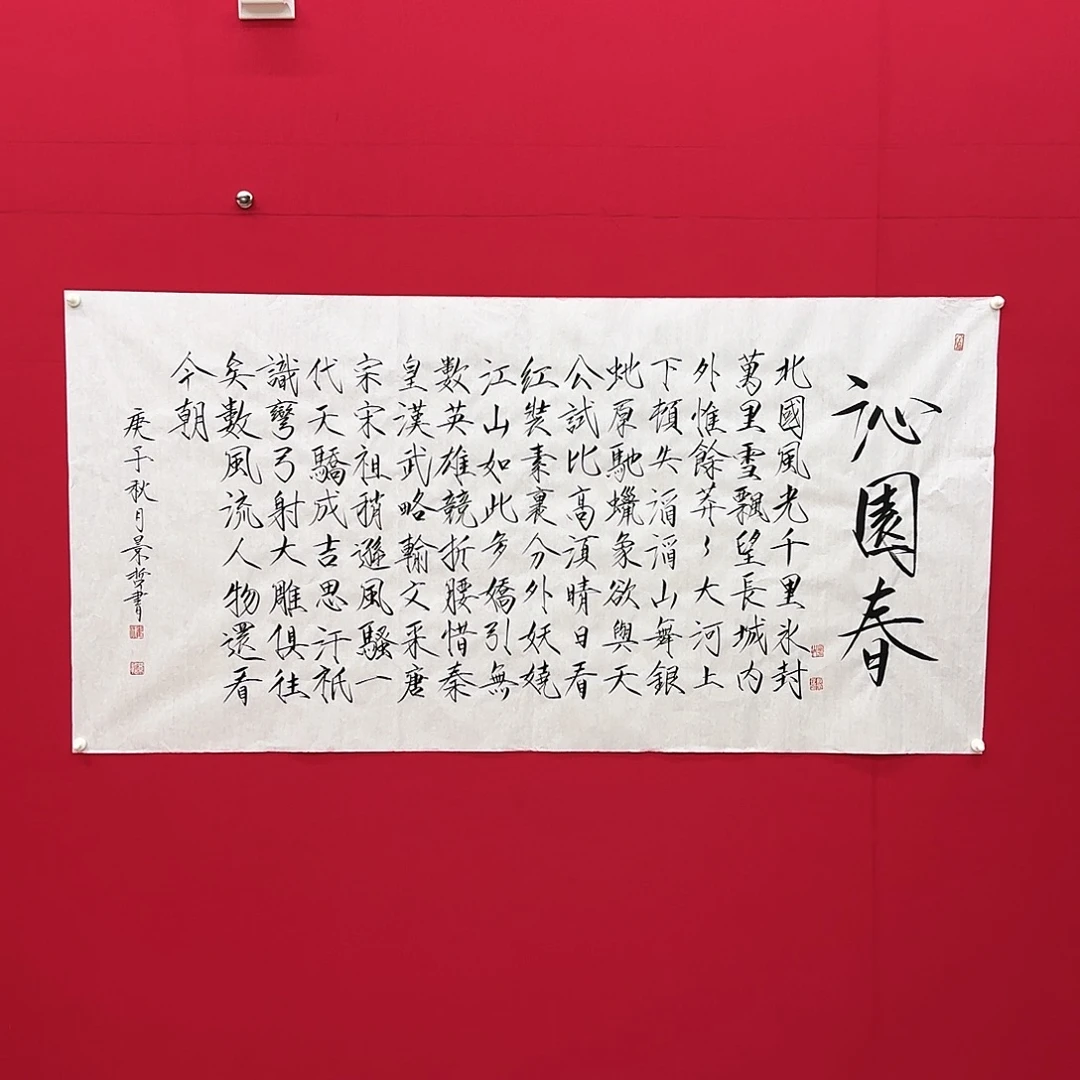 沁園春
北國風光千里氷封
萬里雪飄望長城内
外惟餘莽〻大河上
下頓失滔滔山舞銀
虵原馳蠟象欲與天
公試比高須晴日看
紅裝素裹分外妖嬈
江山如此多嬌引無
數英雄競折腰惜秦
皇漢武略輸文采唐
宋宋祖稍遜風騷一
代天驕成吉思汗祇
識彎弓射大雕俱往
矣數風流人物還看
今朝
庚子秋月景哲書